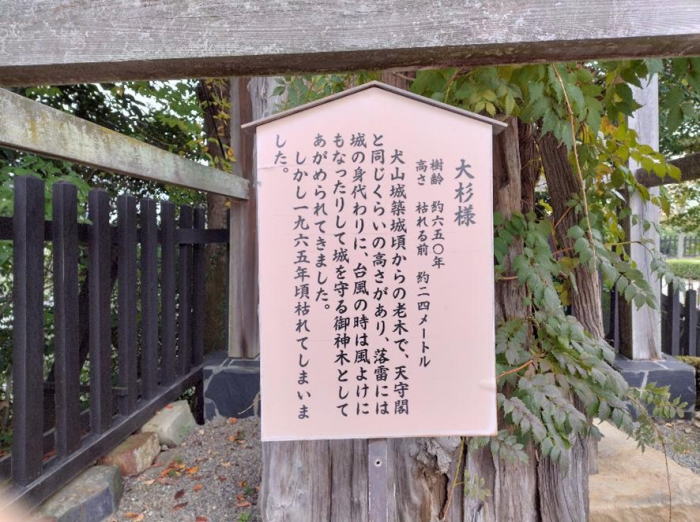 大杉様
樹齢　約六五〇年
高さ　枯れる前　約二四メートル
犬山城築城頃からの老木で、天守閣
と同じくらいの高さがあり、落雷には
城の身代わりに、台風の時は風よけに
もなったりして城を守る御神木として
あがめられてきました。
しかし一九六五年頃枯れてしまいま
した。